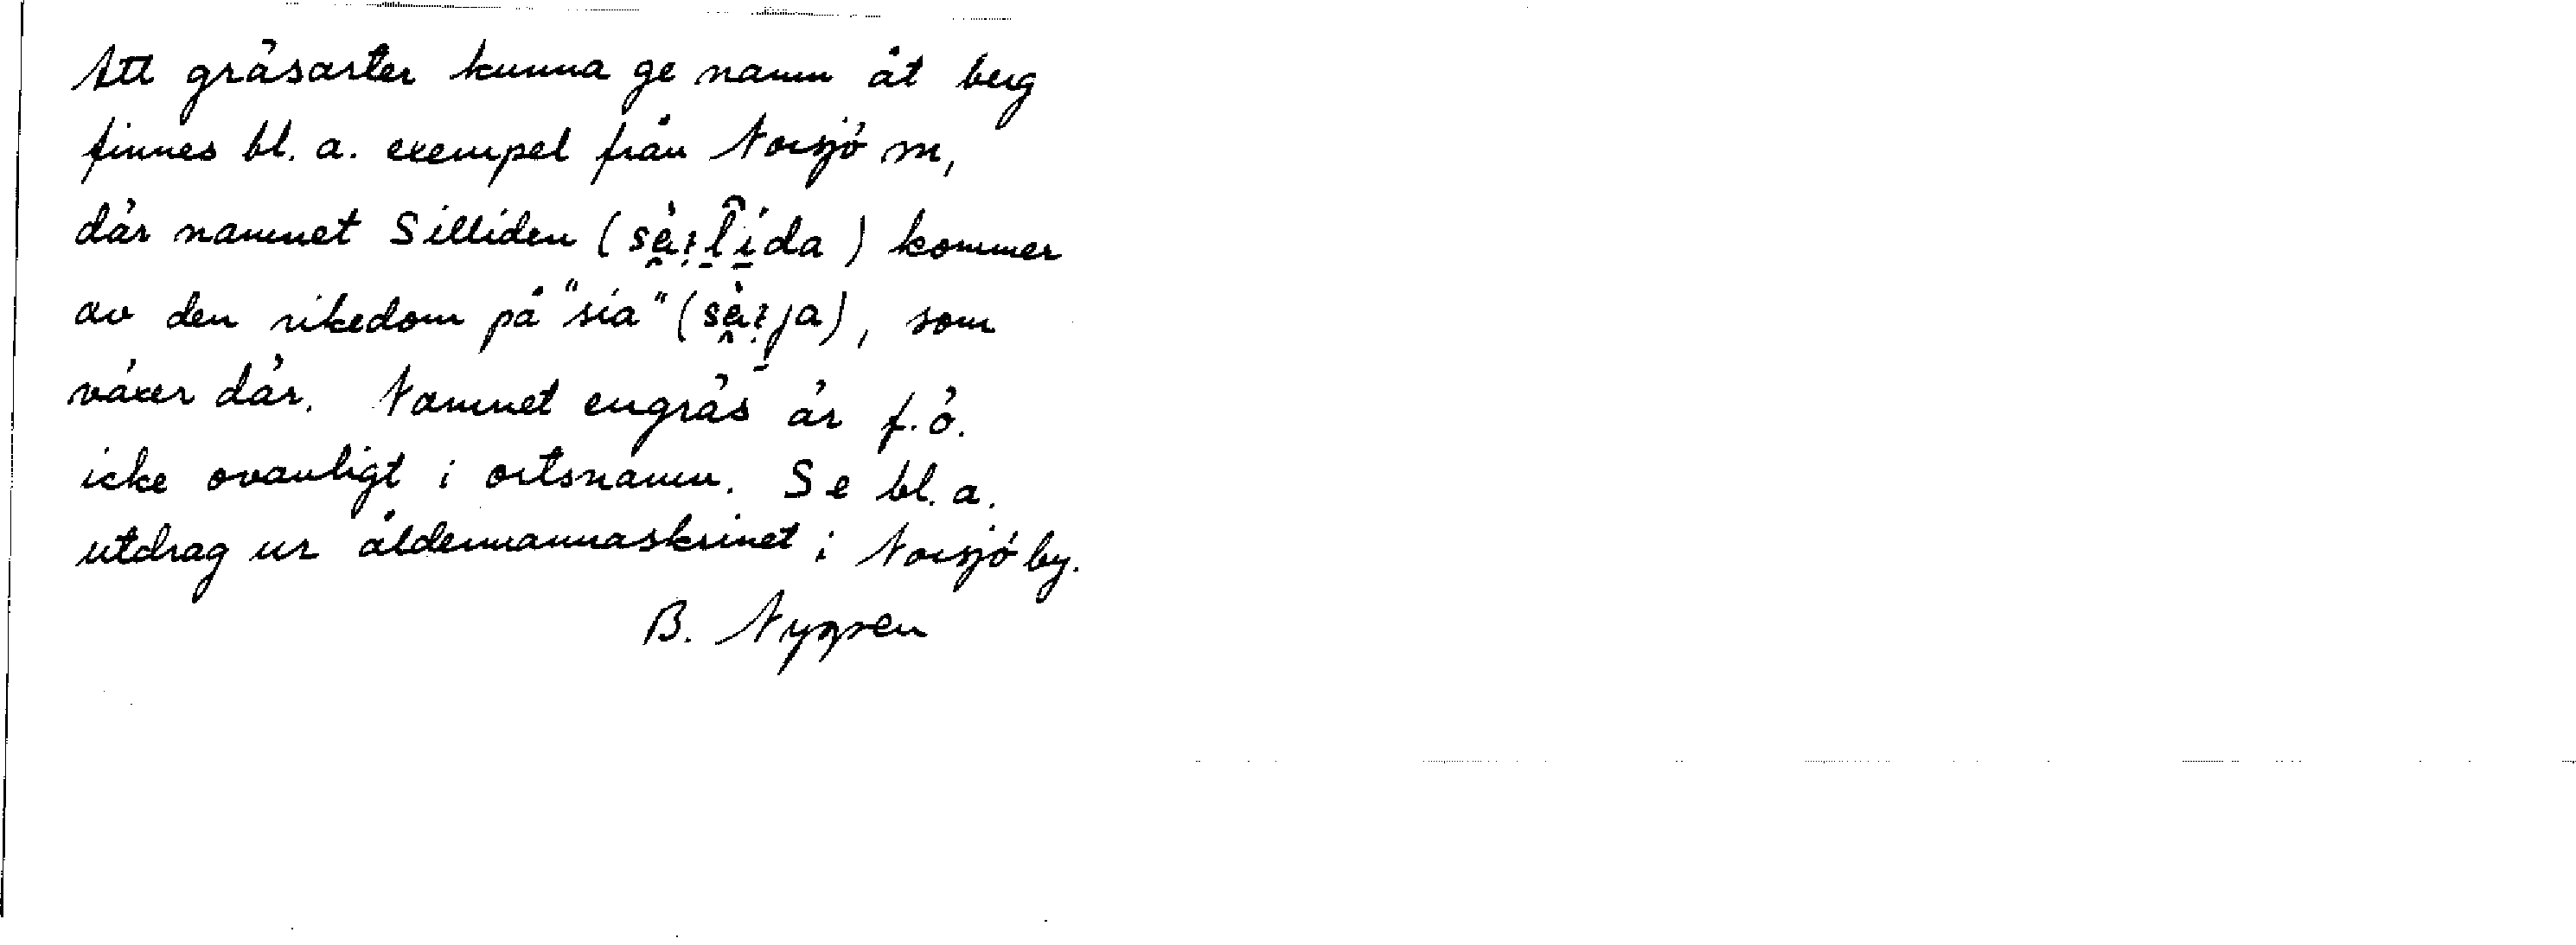 Att gräsarter kunna ge namn åt berg
finnes bl. a. exempel från Norsjö m,
där namnet Silliden ( ) kommer
av den rikedom på "sia" ( ), som
växer där. Namnet engräs är f. ö.
icke ovanligt i ortsnamn. Se bl. a.
utdrag ur åldermannaskrinet i Norsjö by.
B. Nygren